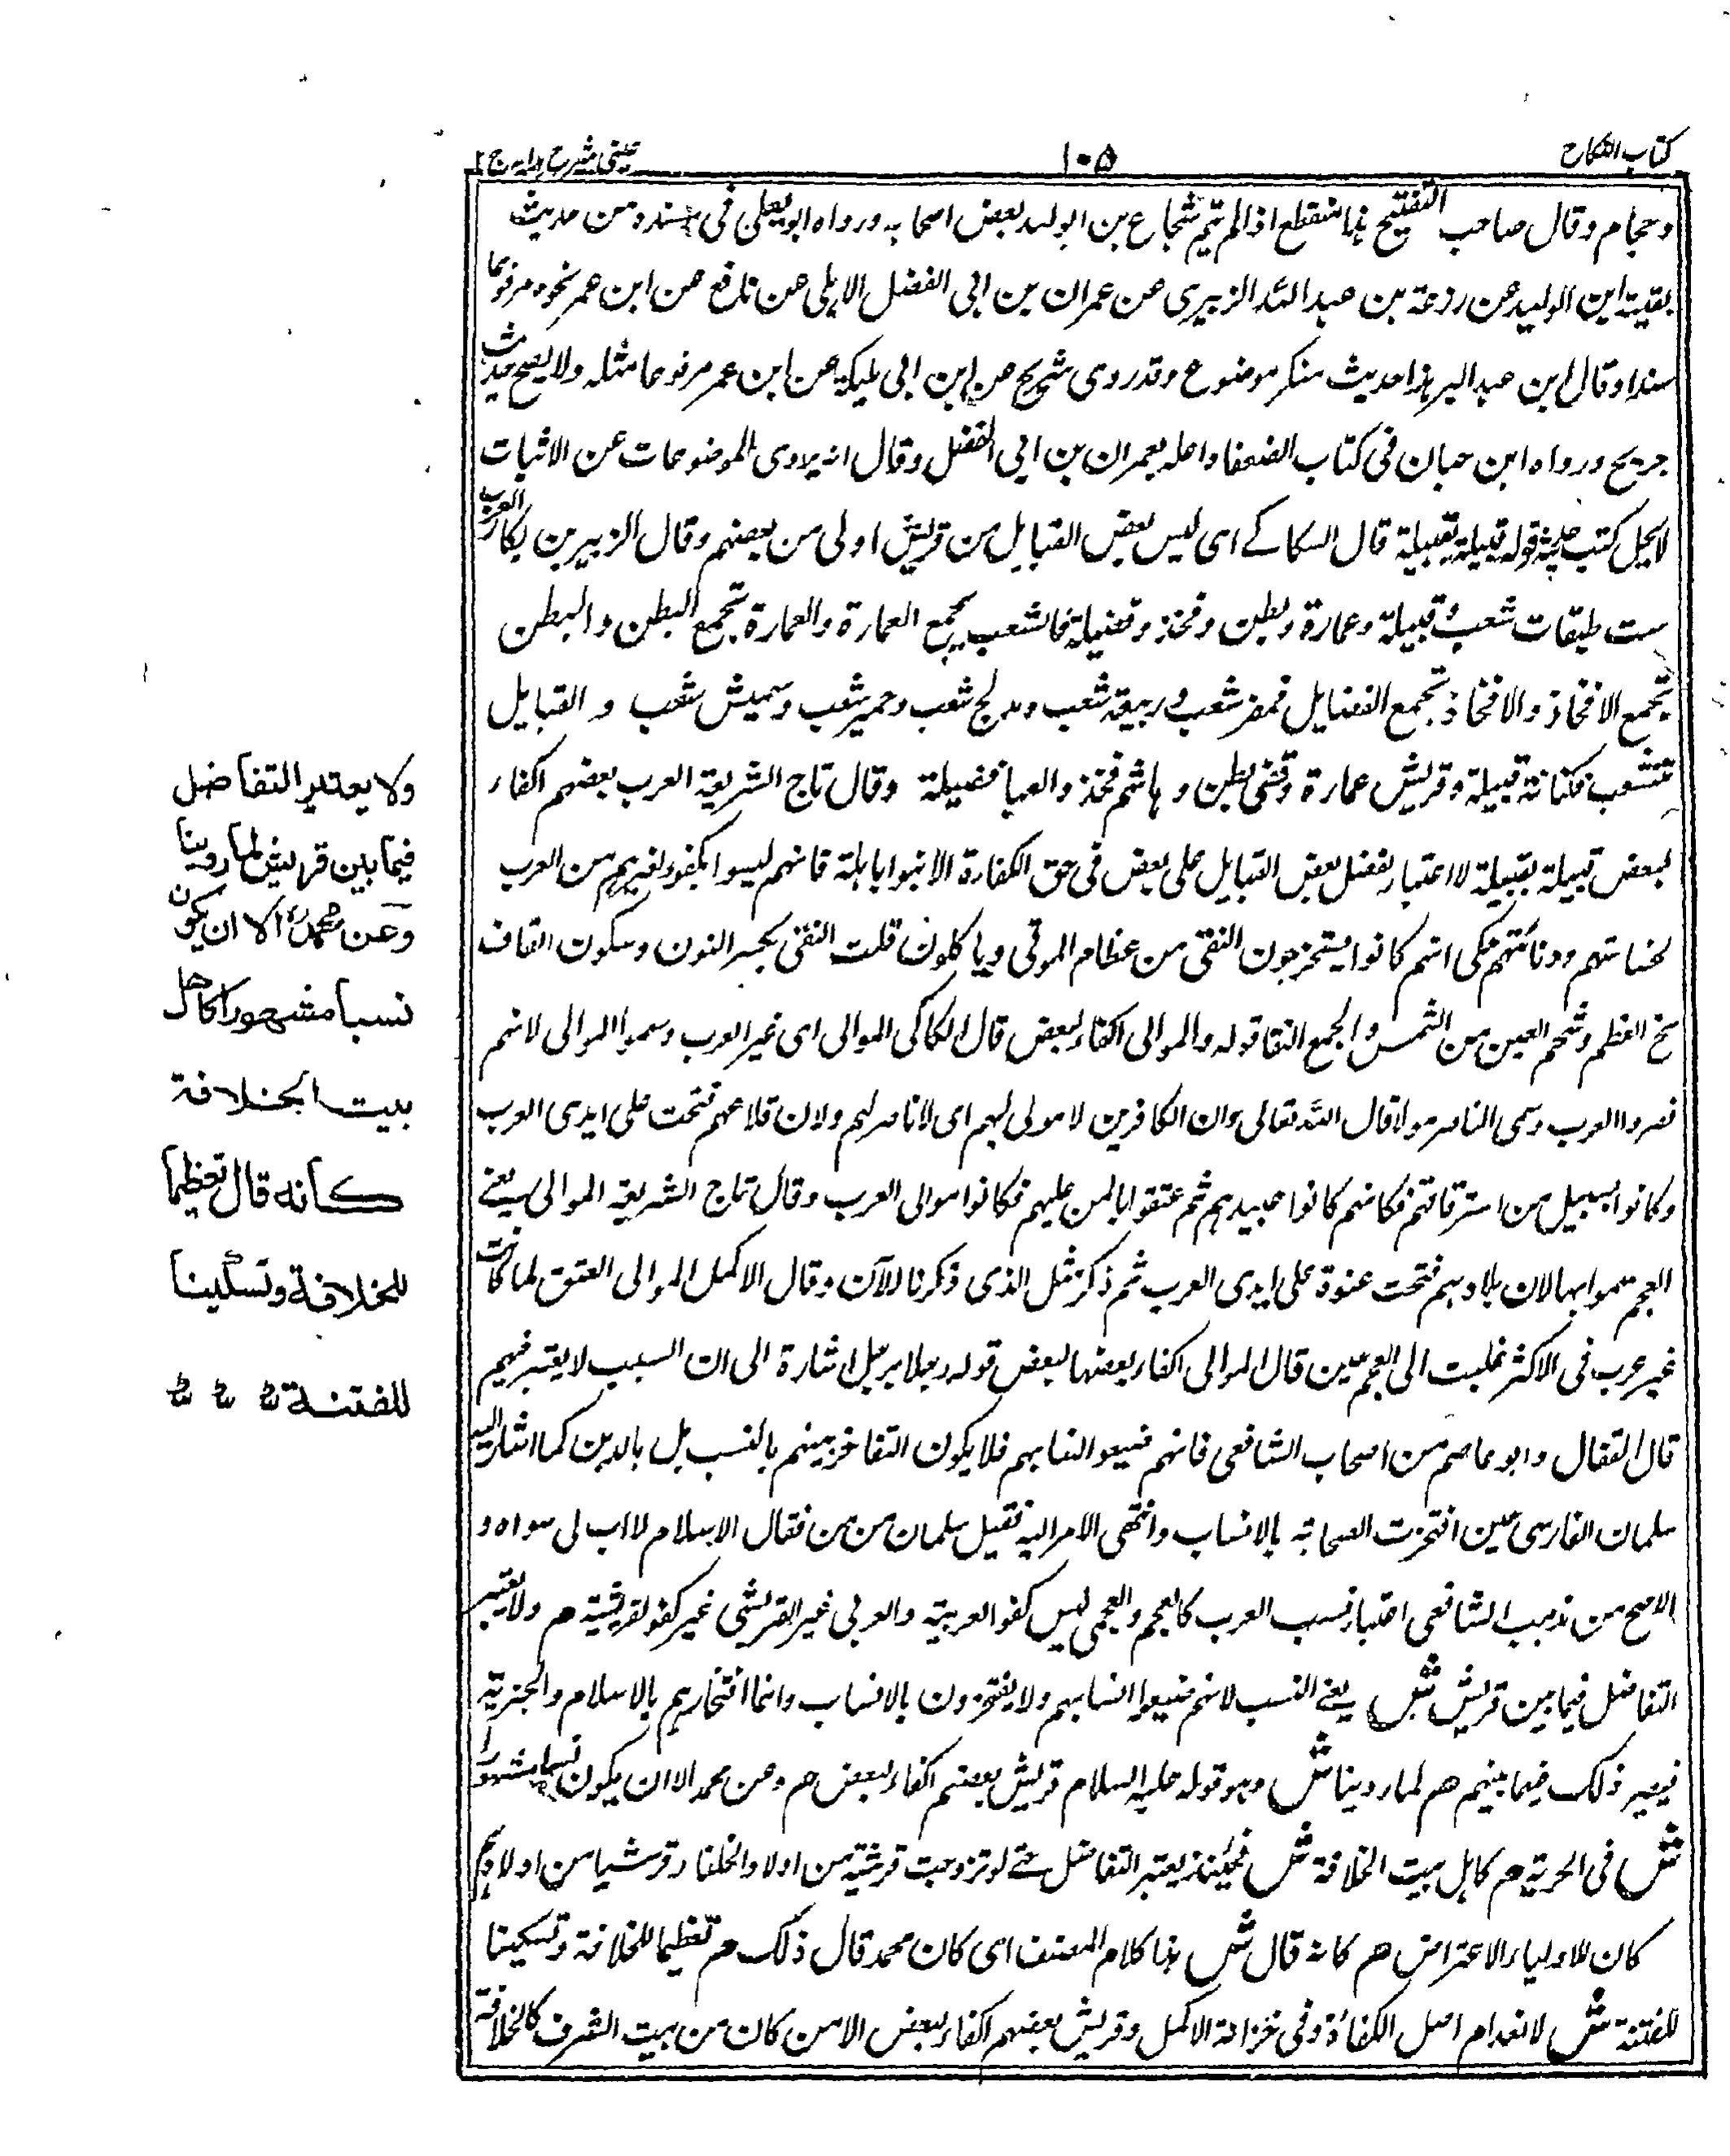 كتاب النكاح
١٠٥
عينى شرح هدايه ج ٢
وحجام وقال صاحب التنقيح هذا منقطع اذا لم يسم شجاع بن الوليد بعض اصحابه ورواه ابو يعلى فى مسنده من حديث
بقية ابن الوليد عن زرعة بن عبد الله الزبيرى عن عمران بن ابى الفضل الايلى عن نافع عن ابن عمر نحوه مرفوعا
سندا وقال ابن عبد البر هذا حديث منكر موضوع وقد روى شريح عن ابن ابى مليكة عن ابن عمر مرفوعا مثله ولا يصح حديث
جريح ورواه ابن حبان فى كتاب الضعفا واعله بعمران بن ابى الفضل وقال انه يروى الموضوعات عن الاثبات
لا يحل كتب حديثه قوله قبيلة بقبيلة قال السكاكے اى ليس بعض القبايل من قريش اولى من بعضهم وقال الزبير بن بكار العرب
ست طبقات شعب وقبيلة وعمارة وبطن وفخذ وفصيلة فالشعب يجمع العمارة والعمارة تجمع البطن والبطن
تجمع الافخاذ والافخاذ تجمع الفضايل فمضر شعب وربيعة شعب ومدلج شعب وحمير شعب وسميش شعب و القبايل
تتشعب فكنانة قبيلة وقريش عمارة وقصى بطن وهاشم فخذ والعباس فصيلة وقال تاج الشريعة العرب بعضهم اكفاء
لبعض قبيلة بقبيلة لا اعتبار بفضل بعض القبايل على بعض فى حق الكفاءة الا بنوا باهلة فانهم ليسوا بكفو لغيرهم من العرب
لخساستهم ودنائتهم حكى انهم كانوا يستخرجون النقى من عظام الموتى وياكلون قلت النقى بكسر النون وسكون القاف
مخ العظم وشحم العين من الشمس والجمع انقا قوله والموالى اكفاء لبعض قال الكاكى الموالى اى غير العرب وسموا الموالى لانهم
نصروا العرب وسمى الناصر مولا قال الله تعالى وان الكافرين لا مولى لهم اى لا ناصر لهم ولان قلاعهم فتحت على ايدى العرب
وكانوا بسبيل من استرقاقهم فكانهم كانوا عبيدهم ثم عتقوا بالمن عليهم فكانوا موالى العرب وقال تاج الشريعة الموالى يعنے
العجم سموا بها لان بلادهم فتحت عنوة على ايدى العرب ثم ذكر مثل الذى ذكرنا للآن وقال الاكمل الموالى العتق لما كانت
غير عرب فى الاكثر غلبت الى العجم حين قال الموالى اكفاء بعضها لبعض قوله رجلا برجل اشارة الى ان النسب لا يعتبر فيهم
قال القفال وابو عاصم من اصحاب الشافعى فانهم ضيعوا انسابهم فلا يكون التفاخر بينهم بالنسب بل بالدين كما اشار اليه
سلمان الفارسى حين افتخرت الصحابة بالانساب وانتهى الامر اليه فقيل سلمان من من فقال الاسلام لا اب لى سواه و
الاصح من مذهب الشافعى اعتبار نسب العرب كالعجم والعجمى ليس كفو العربية والعربى غير القريشى غير كفو لقريشية م ولا يعتبر
التفاضل فيما بين قريش ش يعنے النسب لانهم ضيعوا انسابهم ولا يفتخرون بالانساب وانما افتخارهم بالاسلام والحرية
فيعتبر ذلك فيما بينهم م لما روينا ش وهو قوله عليه السلام قريش بعضهم اكفاء لبعض م وعن محمد الا ان يكون نسبا مشهورا
ش فى الحرية م كاهل بيت الخلافة ش فحينئذ يعتبر التفاضل حتے لو تزوجت قرشية من اولاد الخلفاء قرشيا من اولادهم
كان للاولياء الاعتراض م كانه قال ش هذا كلام المصنف اى كان محمد قال ذلك م تعظيما للخلافة وتسكينا
للفتنة ش لا نعدام اصل الكفاءة وفى خزانة الاكمل وقريش بعضهم اكفاء لبعض الا من كان من بيت الشرف كالخلافة
ولا يعتبر التفاضل
فيما بين قريش لما روينا
وعن محمد رح الا ان يكون
نسبا مشهورا كاهل
بيت الخلافة
كانه قال تعظيما
للخلافة وتسكينا
للفتنة